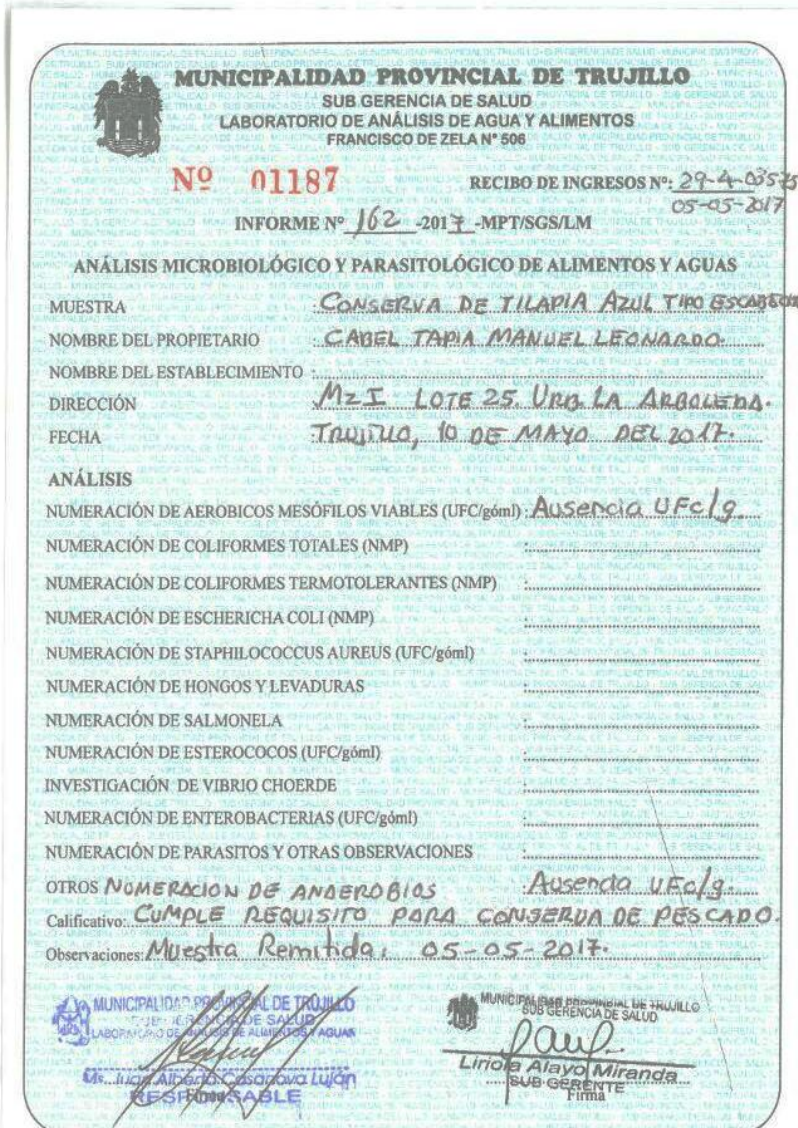 MUNICIPALIDAD PROVINCIAL DE TRUJILLO
SUB GERENCIA DE SALUD
LABORATORIO DE ANÁLISIS DE AGUA Y ALIMENTOS
FRANCISCO DE ZELA N° 506
Nº 01187
RECIBO DE INGRESOS Nº: 29-4-03575
05-05-2017
INFORME Nº 162 -2017 -MPT/SGS/LM
ANÁLISIS MICROBIOLÓGICO Y PARASITOLÓGICO DE ALIMENTOS Y AGUAS
MUESTRA : CONSERVA DE TILAPIA AZUL TIPO ESCABECHE
NOMBRE DEL PROPIETARIO : CABEL TAPIA MANUEL LEONARDO.
NOMBRE DEL ESTABLECIMIENTO :
DIRECCIÓN : MZ I LOTE 25 URB LA ARBOLEDA.
FECHA : TRUJILLO, 10 DE MAYO DEL 2017.
ANÁLISIS
NUMERACIÓN DE AEROBICOS MESÓFILOS VIABLES (UFC/góml) : Ausencia UFC/g.
NUMERACIÓN DE COLIFORMES TOTALES (NMP) :
NUMERACIÓN DE COLIFORMES TERMOTOLERANTES (NMP) :
NUMERACIÓN DE ESCHERICHA COLI (NMP) :
NUMERACIÓN DE STAPHILOCOCCUS AUREUS (UFC/góml) :
NUMERACIÓN DE HONGOS Y LEVADURAS :
NUMERACIÓN DE SALMONELA :
NUMERACIÓN DE ESTEROCOCOS (UFC/góml) :
INVESTIGACIÓN DE VIBRIO CHOERDE :
NUMERACIÓN DE ENTEROBACTERIAS (UFC/góml) :
NUMERACIÓN DE PARASITOS Y OTRAS OBSERVACIONES :
OTROS NUMERACION DE ANAEROBIOS : Ausencia UFC/g.
Calificativo: CUMPLE REQUISITO PARA CONSERVA DE PESCADO.
Observaciones: Muestra Remitida: 05-05-2017.
MUNICIPALIDAD PROVINCIAL DE TRUJILLO
SUB GERENCIA DE SALUD
LABORATORIO DE ANALISIS DE ALIMENTOS Y AGUAS
Ms. Juan Alberto Casanova Luján
Firma
RESPONSABLE
MUNICIPALIDAD PROVINCIAL DE TRUJILLO
SUB GERENCIA DE SALUD
Liriola Alayo Miranda
SUB GERENTE
Firma